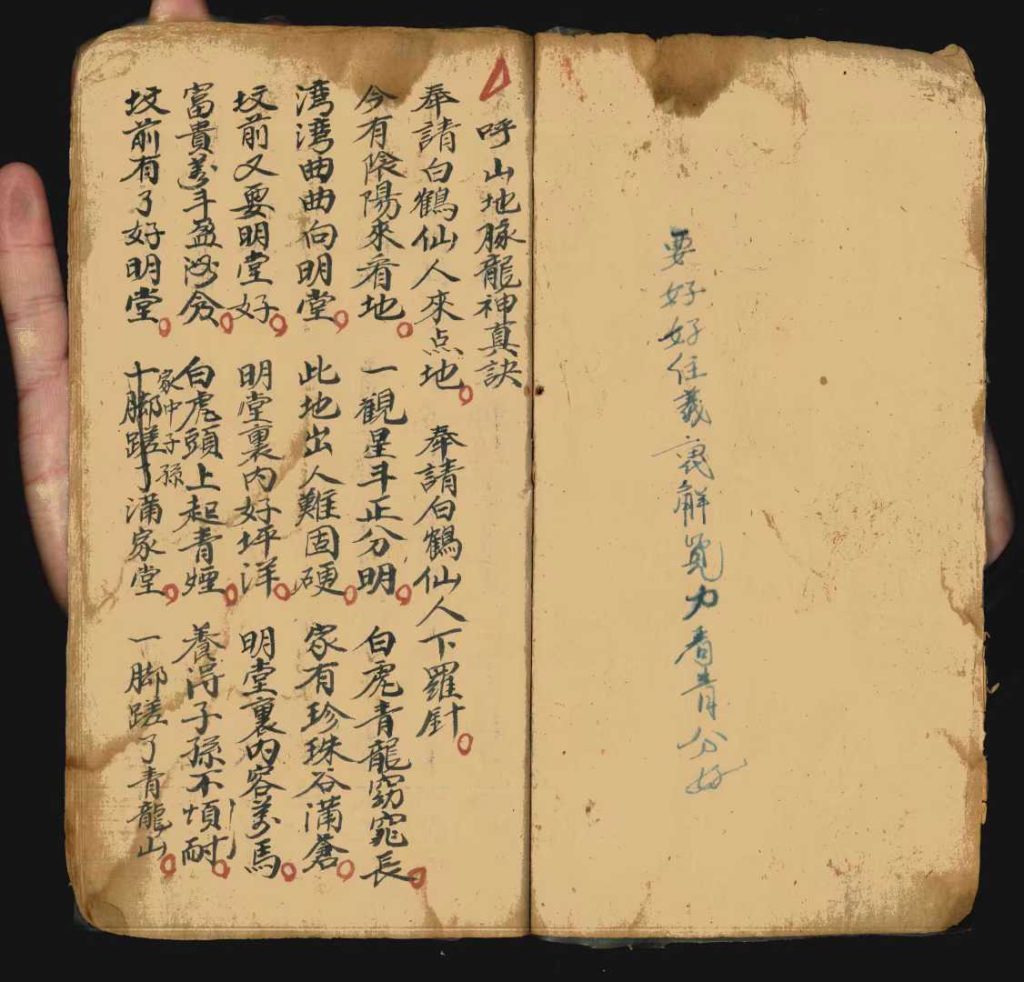 要好好住義裏解覚力看青分好
呼山地脉龍神真訣
奉請白鶴仙人來点地。 奉請白鶴仙人下羅針。
今有陰陽來看地。 一觀星斗正分明。 白虎青龍窈窕長。
湾湾曲曲向明堂。 此地出人難固硬。 家有珍珠谷滿蒼。
坟前又要明堂好。 明堂裏内好坪洋。 明堂裏内容萬馬。
富貴萬斗盈。 白虎頭上起青煙。 養淂子孫不煩耐。
家中子孫
坟前有了好明堂。 十脚蹉了滿家堂。 一脚蹉了青龍山。